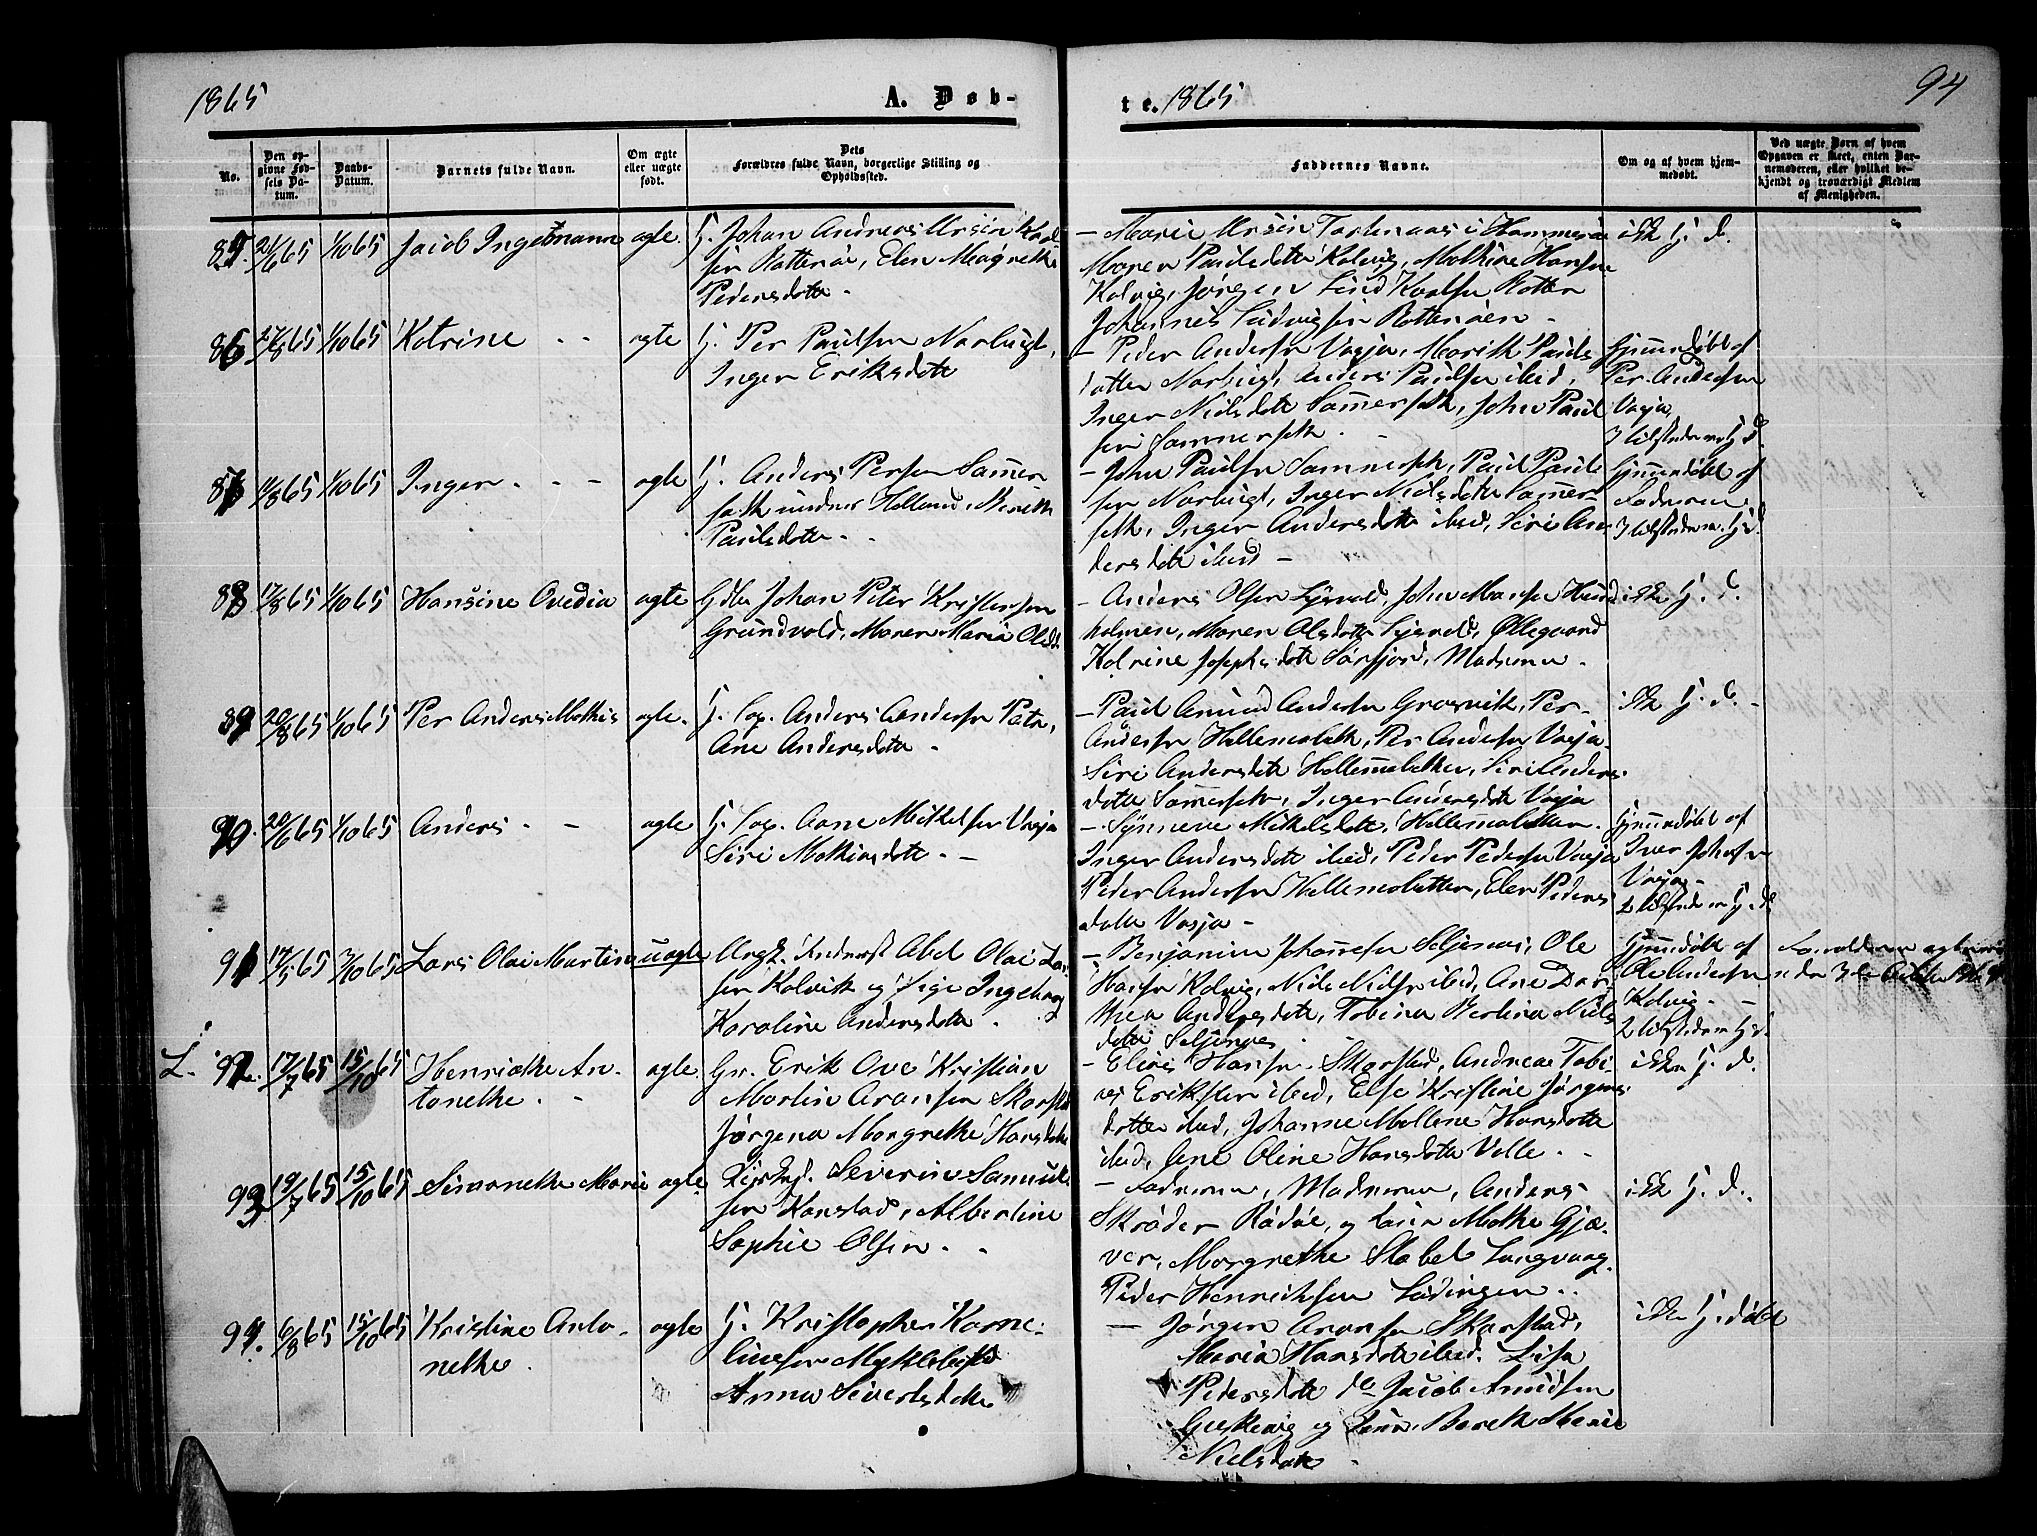 1865
A. Døb-
te. 1865
94
No.
Den opgivne Fødsels Datum.
Daabs-Datum.
Barnets fulde Navn.
Om ægte eller uægte født.
Dets Forældres fulde Navn, borgerlige Stilling og Opholdssted.
Faddernes Navne.
Om og af hvem hjemmedøbt.
Ved uægte Børn af hvem Opgaven er skeet, enten Barnemoderen, eller hvilket bekjendt og troværdigt Medlem af Menigheden.
85. 1/10 65 Ingebmann ægte. G. Johan Andreas Ursin
Rottenøe, Elen Magrethe
Pedersdatter
- Marie Ursin i Hammerøe
Maren Paulsdatter Kolvig, Hansen
Kolvig, Jørgen Lind Karlsen Rotten
Johannes Ludvigsen Rottenøen -
ikke H. d.
86 27/8 65 1/10 65 Katrine - - ægte G. Per Paulsen Norbugt,
Inger Eriksdatter
- Peder Andersen Vasja, Marith Pauls
datter Norbugt, Anders Paulsen ibid,
Inger Nielsdatter Sommerseth, John Paul
sen Sommerseth.
Hjemmedøbt af
Per Andersen
Vasja,
87 1/10 65 Inger - - - ægte G. Anders Persen Sommer
seth under Helland, Marith
Paulsdatter -
- John Paulsen Sommerseth, Paul Paul
sen Norbugt, Inger Nielsdatter Sommer-
seth, Inger Andersdatter ibid, Siri An
dersdatter ibid -
Hjemmedøbt af
Faderen
88 17/8 65 1/10 65 Hansine Ovedia ægte Gdbr Johan Peter Kristensen
Grundvold, Maren Maria Olsd.
- Anders Olsen Lysvold, John Hansen Hund
holmen, Maren Olsdatter Lysvold, Øllegaard
Katrine Josephsdatter Sørfjord, Moderen -
ikke H. d.
89 20/8 65 1/10 65 Per Anders Mathis ægte. G. Lap. Anders Andersen
Ane Andersdatter -
- Paul Amund Andersen Grasvik, Per
Andersen Hellemobotn, Per Andersen Vasja
Siri Andersdatter Hellemobotten, Siri Anders
datter Sommerseth, Inger Andersdatter Vasja
ikke H. d. -
90. 20/6 65 1/10 65 Anders - - ægte G. Lap. Aane Mikkelsen Vasja
Siri Mathiasdatter - -
- Synneve Mikkelsdatter, Hellemobotten
Inger Andersdatter ibid, Peder Pedersen Vasja
Peder Andersen Hellemobotten, Elen Peders
datter Vasja -
Hjemmedøbt af
Iver Johnsen
Vasja -
91 17/5 65 1/10 65 Lars Olai Martin uægte Ungk. Abel Olai Lar
sen Kolvik og Pige Ingeborg
Karoline Andersdatter
- Benjamin Johansen Seljenes, Ole
Hansen Kolvig, Niels Nielsen ibid, Ane Dor
thea Andersdatter, Tobina Berlina Niels
datter Seljenes
Hjemmedøbt af
Ole Andersen
Kolvig - -
L. 92. 17/7 65 15/10 65 Henriette An-
tonette - ægte. Gr. Erik Ove Kristian
Martin Aronsen Skarstad
Jørgena Margrethe Hansdatter
- Elias Hansen Skarstad, Andreas Tobi
as Eriksen ibid, Else Kristine Jørgens
datter ibid, Johanne Hansdatter
ibid, Ane Oline Hansdatter Valle -
ikke H. d.
93 19/7 65 15/10 65 Simonette Marie ægte. Severin Samuel
sen Kanstad, Albertine
Sophie Olsen -
- Faderen, Moderen, Anders
Skrøder Rødøe, og Malke Gjæ-
ver, Margrethe Stabel Langvaag,
Peder Henriksen Lødingen
ikke H. d.
94. 6/8 65 15/10 65 Kristine Anto-
nette ægte G. Kristopher Korne-
liussen Myklebost
Anna Sivertsdatter
- Jørgen Aronsen Skarstad,
Maria Hansdatter ibid. Lisa
Pedersdatter do Jacob Amundsen
og Bereth Marie
Nielsdatter
ikke H. døbt